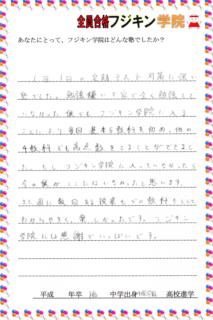 全員合格フジキン学院
あなたにとって、フジキン学院はどんな塾でしたか？
1年1回の定期テスト対策に強い
塾でした。勉強嫌いで家で全く勉強して
いなかった僕でもフジキン学院に入る
ことにより毎回基本5教科を初め、他の
4教科でも高点数をとることができまし
た。もしフジキン学院に入っていなかったら
今の僕がここにはいなかったと思います。
また週に数回ある授業もどの教科もとても
わかりやすく、楽しかったです。フジキン
学院には感謝でいっぱいです。
平成 年卒 中学出身 高校進学